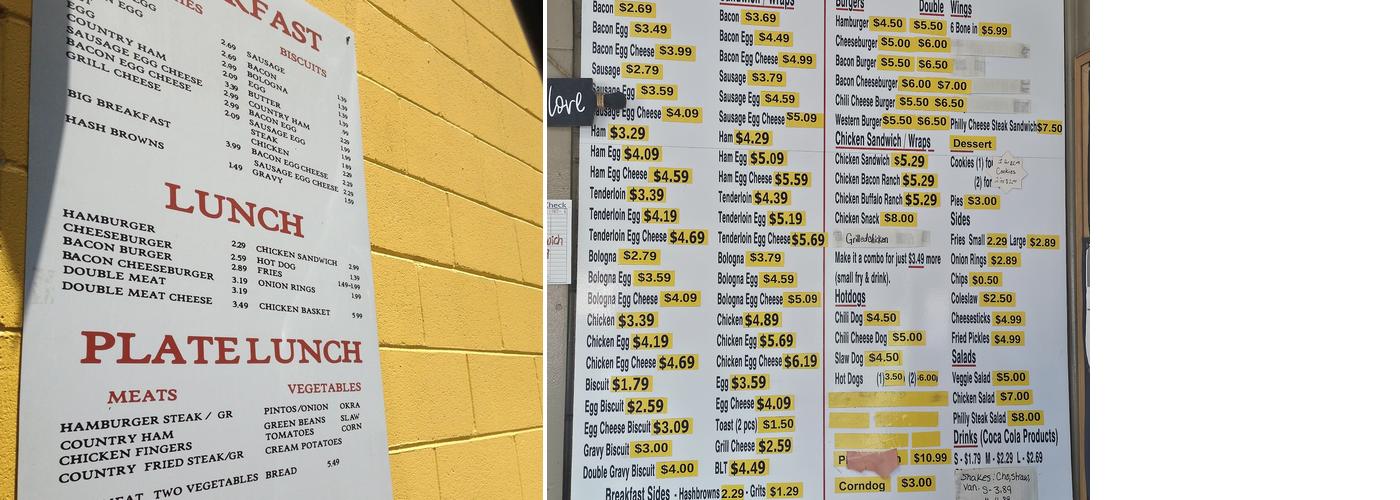 BREAKFAST
BISCUITS
EGG
COUNTRY HAM
SAUSAGE EGG CHEESE
BACON EGG CHEESE
GRILL CHEESE
BIG BREAKFAST 3.99
HASH BROWNS 1.49
SAUSAGE
BACON
BOLOGNA
EGG
BUTTER
COUNTRY HAM
BACON EGG
SAUSAGE EGG
STEAK
CHICKEN
BACON EGG CHEESE
SAUSAGE EGG CHEESE
GRAVY
LUNCH
HAMBURGER 2.29
CHEESEBURGER 2.59
BACON BURGER 2.89
BACON CHEESEBURGER 3.19
DOUBLE MEAT 3.19
DOUBLE MEAT CHEESE 3.49
CHICKEN SANDWICH 2.99
HOT DOG 1.39
FRIES 1.49-1.99
ONION RINGS 1.99
CHICKEN BASKET 5.99
PLATE LUNCH
MEATS
HAMBURGER STEAK / GR
COUNTRY HAM
CHICKEN FINGERS
COUNTRY FRIED STEAK/GR
VEGETABLES
PINTOS/ONION OKRA
GREEN BEANS SLAW
TOMATOES CORN
CREAM POTATOES
MEAT TWO VEGETABLES BREAD 5.49
love
Check
Bacon $2.69
Bacon Egg $3.49
Bacon Egg Cheese $3.99
Sausage $2.79
Sausage Egg $3.59
Sausage Egg Cheese $4.09
Ham $3.29
Ham Egg $4.09
Ham Egg Cheese $4.59
Tenderloin $3.39
Tenderloin Egg $4.19
Tenderloin Egg Cheese $4.69
Bologna $2.79
Bologna Egg $3.59
Bologna Egg Cheese $4.09
Chicken $3.39
Chicken Egg $4.19
Chicken Egg Cheese $4.69
Biscuit $1.79
Egg Biscuit $2.59
Egg Cheese Biscuit $3.09
Gravy Biscuit $3.00
Double Gravy Biscuit $4.00
Sandwich / Wraps
Bacon $3.69
Bacon Egg $4.49
Bacon Egg Cheese $4.99
Sausage $3.79
Sausage Egg $4.59
Sausage Egg Cheese $5.09
Ham $4.29
Ham Egg $5.09
Ham Egg Cheese $5.59
Tenderloin $4.39
Tenderloin Egg $5.19
Tenderloin Egg Cheese $5.69
Bologna $3.79
Bologna Egg $4.59
Bologna Egg Cheese $5.09
Chicken $4.89
Chicken Egg $5.69
Chicken Egg Cheese $6.19
Egg $3.59
Egg Cheese $4.09
Toast (2 pcs) $1.50
Grill Cheese $2.59
BLT $4.49
Breakfast Sides - Hashbrowns 2.29 - Grits $1.29
Burgers Double
Hamburger $4.50 $5.50
Cheeseburger $5.00 $6.00
Bacon Burger $5.50 $6.50
Bacon Cheeseburger $6.00 $7.00
Chili Cheese Burger $5.50 $6.50
Western Burger $5.50 $6.50
Chicken Sandwich / Wraps
Chicken Sandwich $5.29
Chicken Bacon Ranch $5.29
Chicken Buffalo Ranch $5.29
Chicken Snack $8.00
Grilled chicken
Make it a combo for just $3.49 more
(small fry & drink).
Hotdogs
Chili Dog $4.50
Chili Cheese Dog $5.00
Slaw Dog $4.50
Hot Dogs (1) 3.50 (2) 6.00
$10.99
Corndog $3.00
Wings
6 Bone in $5.99
Philly Cheese Steak Sandwich $7.50
Dessert
Cookies (1) for
(2) for
Cookies
Pies $3.00
Sides
Fries Small 2.29 Large $2.89
Onion Rings $2.89
Chips $0.50
Coleslaw $2.50
Cheesesticks $4.99
Fried Pickles $4.99
Salads
Veggie Salad $5.00
Chicken Salad $7.00
Philly Steak Salad $8.00
Drinks (Coca Cola Products)
S - $1.79 M - $2.29 L - $2.69
Shakes: Cho, straw
Van. S - 3.89